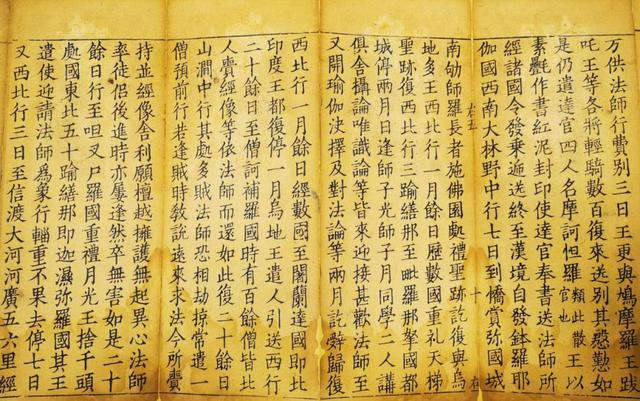 万供法師行費別三日王更與鳩摩羅王跋
吒王等各將輕騎數百復來送別其慇懃如
是仍遣達官四人名摩訶怛羅類此散官也王以
素㲲作書紅泥封印使達官奉書送法師所
經諸國令發乘遞送終至漢境自發鉢羅耶
伽國西南大林野中行七日到憍賞彌國城
十
南劬師羅長者施佛園處禮聖跡訖復與烏
地多王西北行一月餘日歷數國重礼天梯
聖跡復西北行三踰繕那至毗羅那拏國都
城停兩月日逢師子光師子月同學二人講
俱舍攝論唯識論等皆來迎接甚歡法師至
又開瑜伽決擇及對法論等兩月訖辤歸復
西北行一月餘日經數國至闍蘭達國即北
印度王都復停一月烏地王遣人引送西行
二十餘日至僧訶補羅國時有百餘僧皆北
人賷經像等依法師而還如此復二十餘日
山澗中行其處多賊法師恐相劫掠常遣一
僧預前行若逢賊時敎說遠來求法今所賷
持並經像舍利願檀越擁護無起異心法師
率徒侶後進時亦屢逢然卒無害如是二十
餘日行至呾叉尸羅國重禮月光王捨千頭
處國東北五十踰繕那即迦濕彌羅國其王
遣使迎請法師爲象行輜重不果去停七日
又西北行三日至信渡大河河廣五六里經